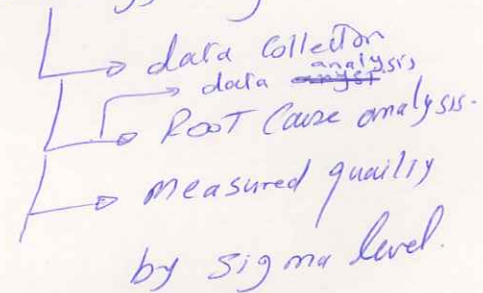 data Collection
data analysis
Root Cause analysis.
measured quailiy
by sigma level.